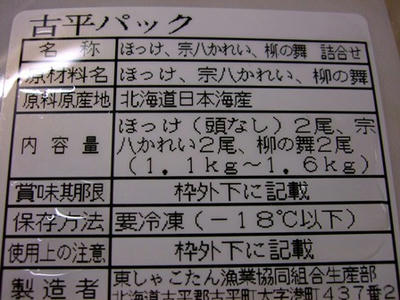 古平パック
名称 ほっけ、宗八かれい、柳の舞 詰合せ
原材料名 ほっけ、宗八かれい、柳の舞
原料原産地 北海道日本海産
内容量 ほっけ(頭なし)2尾、宗
八かれい2尾、柳の舞2尾
(1.1kg~1.6kg)
賞味期限 枠外下に記載
保存方法 要冷凍(-18℃以下)
使用上の注意 枠外下に記載
製造者 東しゃこたん漁業協同組合生産部
北海道古平郡古平町大字港町437番2